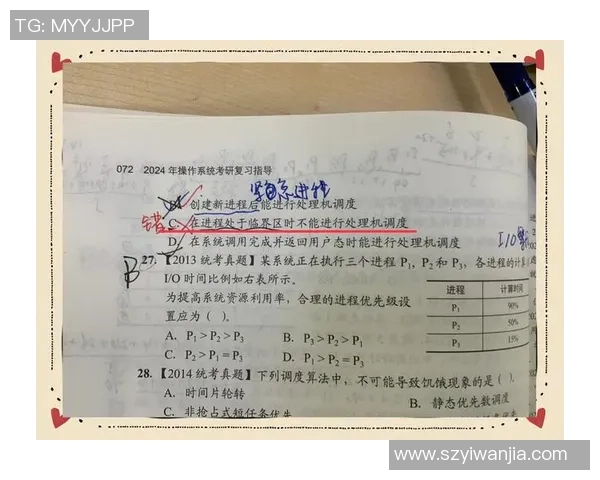 TG: MYYJJPP
072 2024年操作系统考研复习指导
紧急进程
B. 创建新进程后能进行处理机调度
错 C. 在进程处于临界区时不能进行处理机调度
D. 在系统调用完成并返回用户态时能进行处理机调度
I/O
B 27. 【2013统考真题】某系统正在执行三个进程 P₁, P₂ 和 P₃, 各进程的计算
I/O 时间比例如右表所示.
进程 计算时间
为提高系统资源利用率，合理的进程优先级设
P₁ 90%
置应为 ( ).
P₂ 50%
A. P₁ > P₂ > P₃ B. P₃ > P₂ > P₁
P₃ 15%
C. P₂ > P₁ = P₃ D. P₁ > P₂ = P₃
28. 【2014统考真题】下列调度算法中，不可能导致饥饿现象的是 ( ).
A. 时间片轮转 B. 静态优先数调度
C. 非抢占式短任务优先
www.szyiwanjia.com